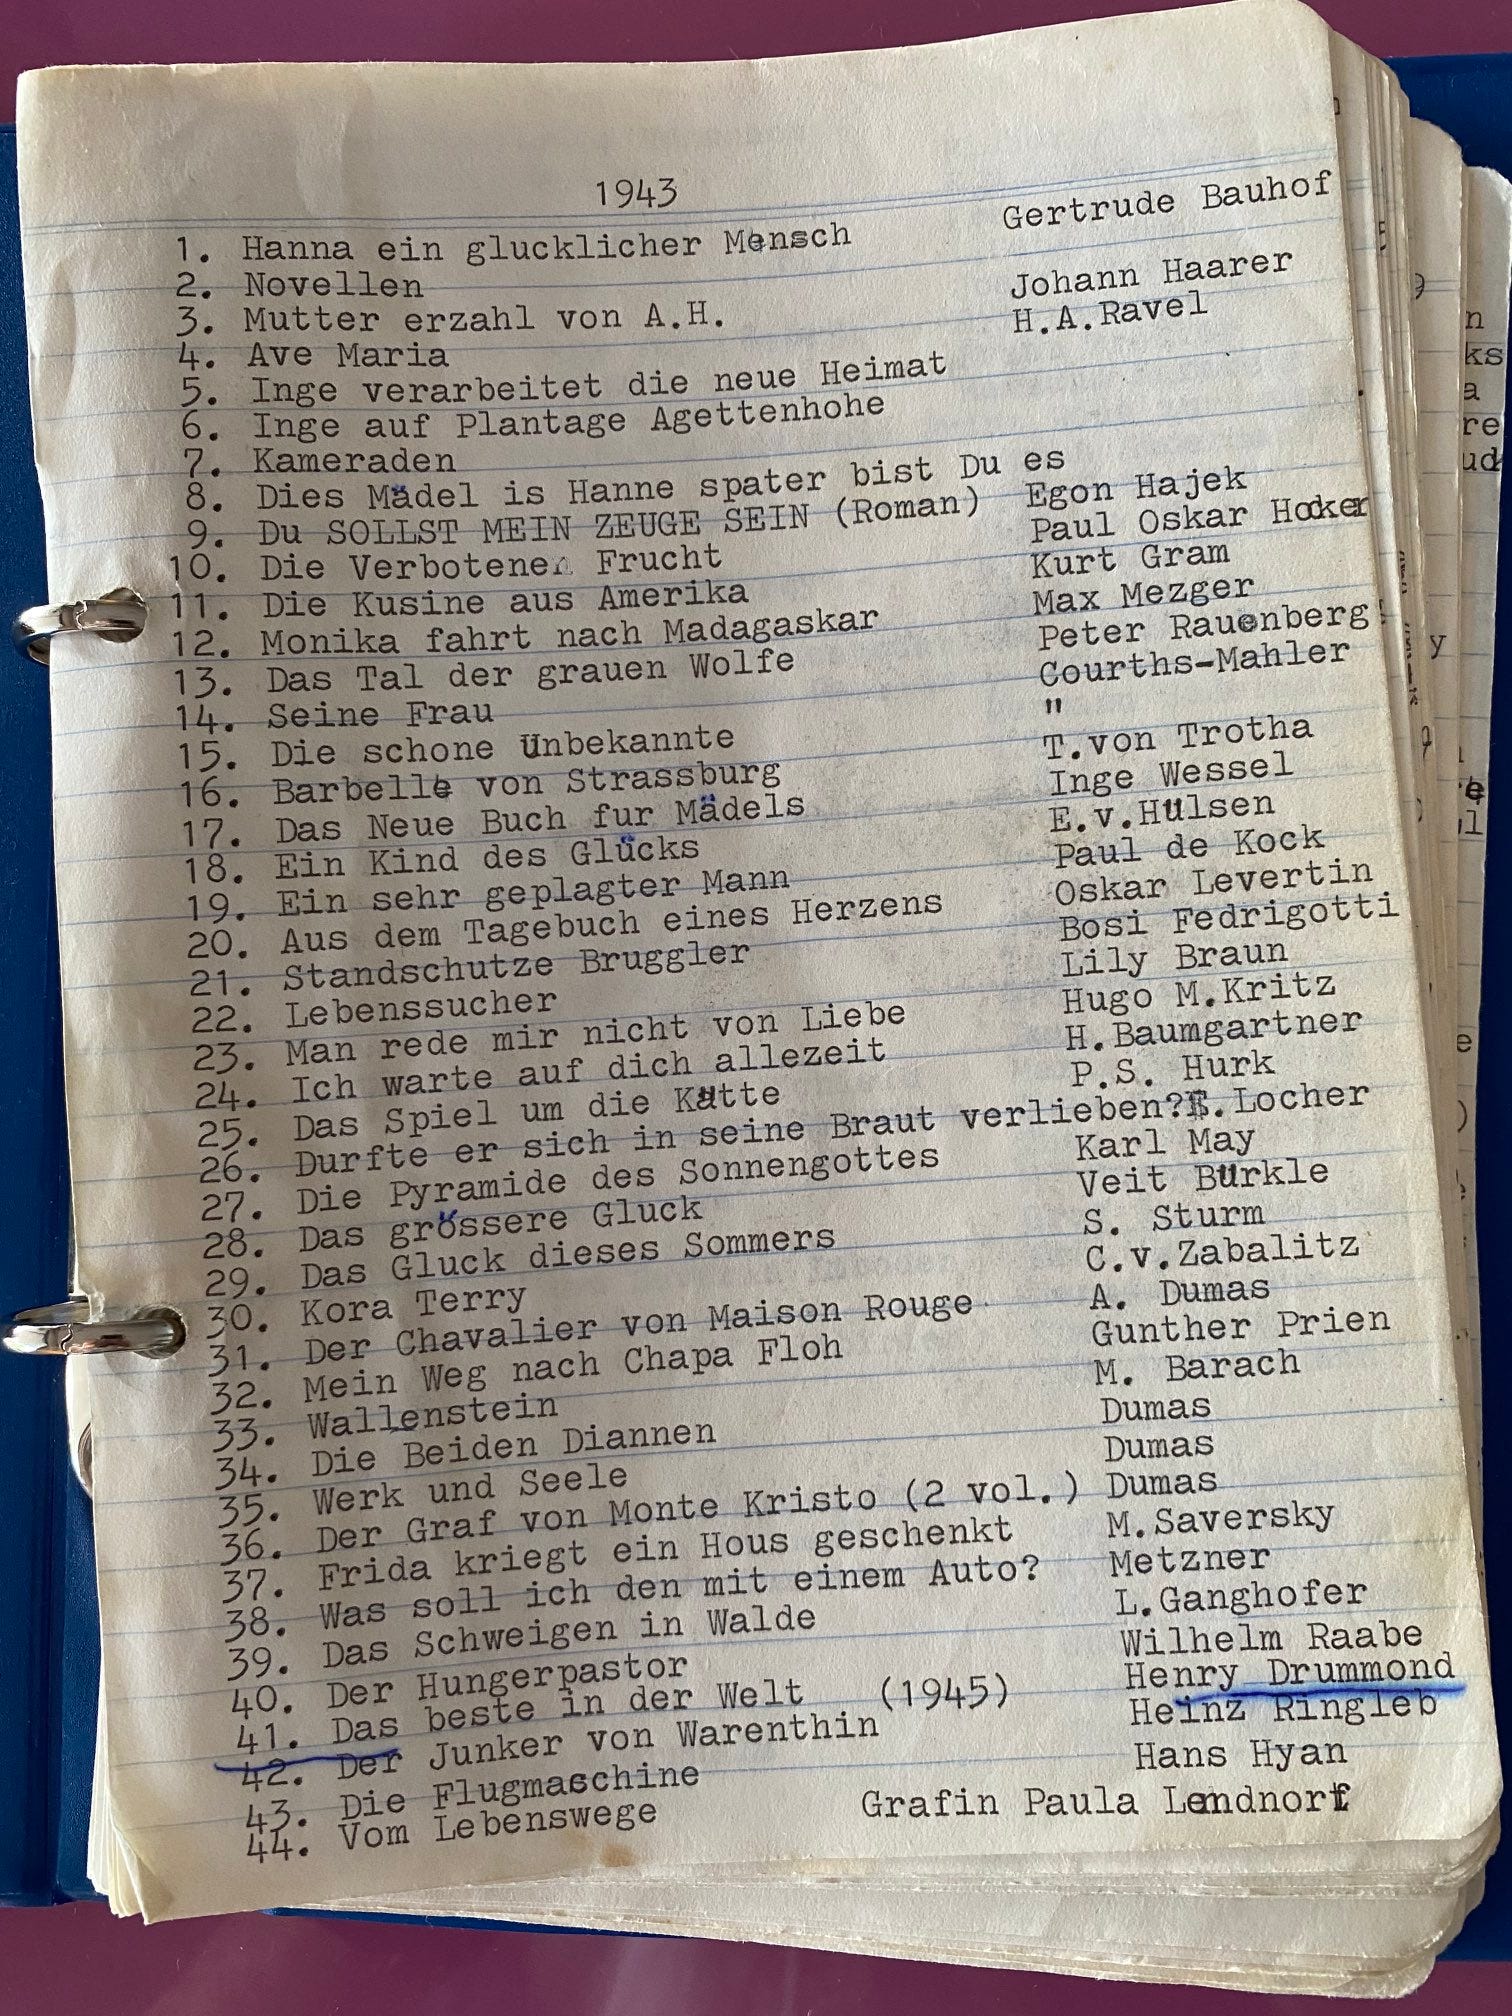 1943
1. Hanna ein glucklicher Mensch Gertrude Bauhof
2. Novellen
3. Mutter erzahl von A.H. Johann Haarer
4. Ave Maria H.A.Ravel
5. Inge verarbeitet die neue Heimat
6. Inge auf Plantage Agettenhohe
7. Kameraden
8. Dies Mädel is Hanne spater bist Du es
9. Du SOLLST MEIN ZEUGE SEIN (Roman) Egon Hajek
10. Die Verbotene Frucht Paul Oskar Hocker
11. Die Kusine aus Amerika Kurt Gram
12. Monika fahrt nach Madagaskar Max Mezger
13. Das Tal der grauen Wolfe Peter Rauenberg
14. Seine Frau Courths-Mahler
15. Die schone Unbekannte "
16. Barbelle von Strassburg T.von Trotha
17. Das Neue Buch fur Mädels Inge Wessel
18. Ein Kind des Glücks E.v.Hülsen
19. Ein sehr geplagter Mann Paul de Kock
20. Aus dem Tagebuch eines Herzens Oskar Levertin
21. Standschutze Bruggler Bosi Fedrigotti
22. Lebenssucher Lily Braun
23. Man rede mir nicht von Liebe Hugo M.Kritz
24. Ich warte auf dich allezeit H.Baumgartner
25. Das Spiel um die Katte P.S. Hurk
26. Durfte er sich in seine Braut verlieben?E.Locher
27. Die Pyramide des Sonnengottes Karl May
28. Das grössere Gluck Veit Bürkle
29. Das Gluck dieses Sommers S. Sturm
30. Kora Terry C.v.Zabalitz
31. Der Chavalier von Maison Rouge A. Dumas
32. Mein Weg nach Chapa Floh Gunther Prien
33. Wallenstein M. Barach
34. Die Beiden Diannen Dumas
35. Werk und Seele Dumas
36. Der Graf von Monte Kristo (2 vol.) Dumas
37. Frida kriegt ein Hous geschenkt M.Saversky
38. Was soll ich den mit einem Auto? Metzner
39. Das Schweigen in Walde L.Ganghofer
40. Der Hungerpastor Wilhelm Raabe
41. Das beste in der Welt (1945) Henry Drummond
42. Der Junker von Warenthin Heinz Ringleb
43. Die Flugmaschine Hans Hyan
44. Vom Lebenswege Grafin Paula Lendnorf